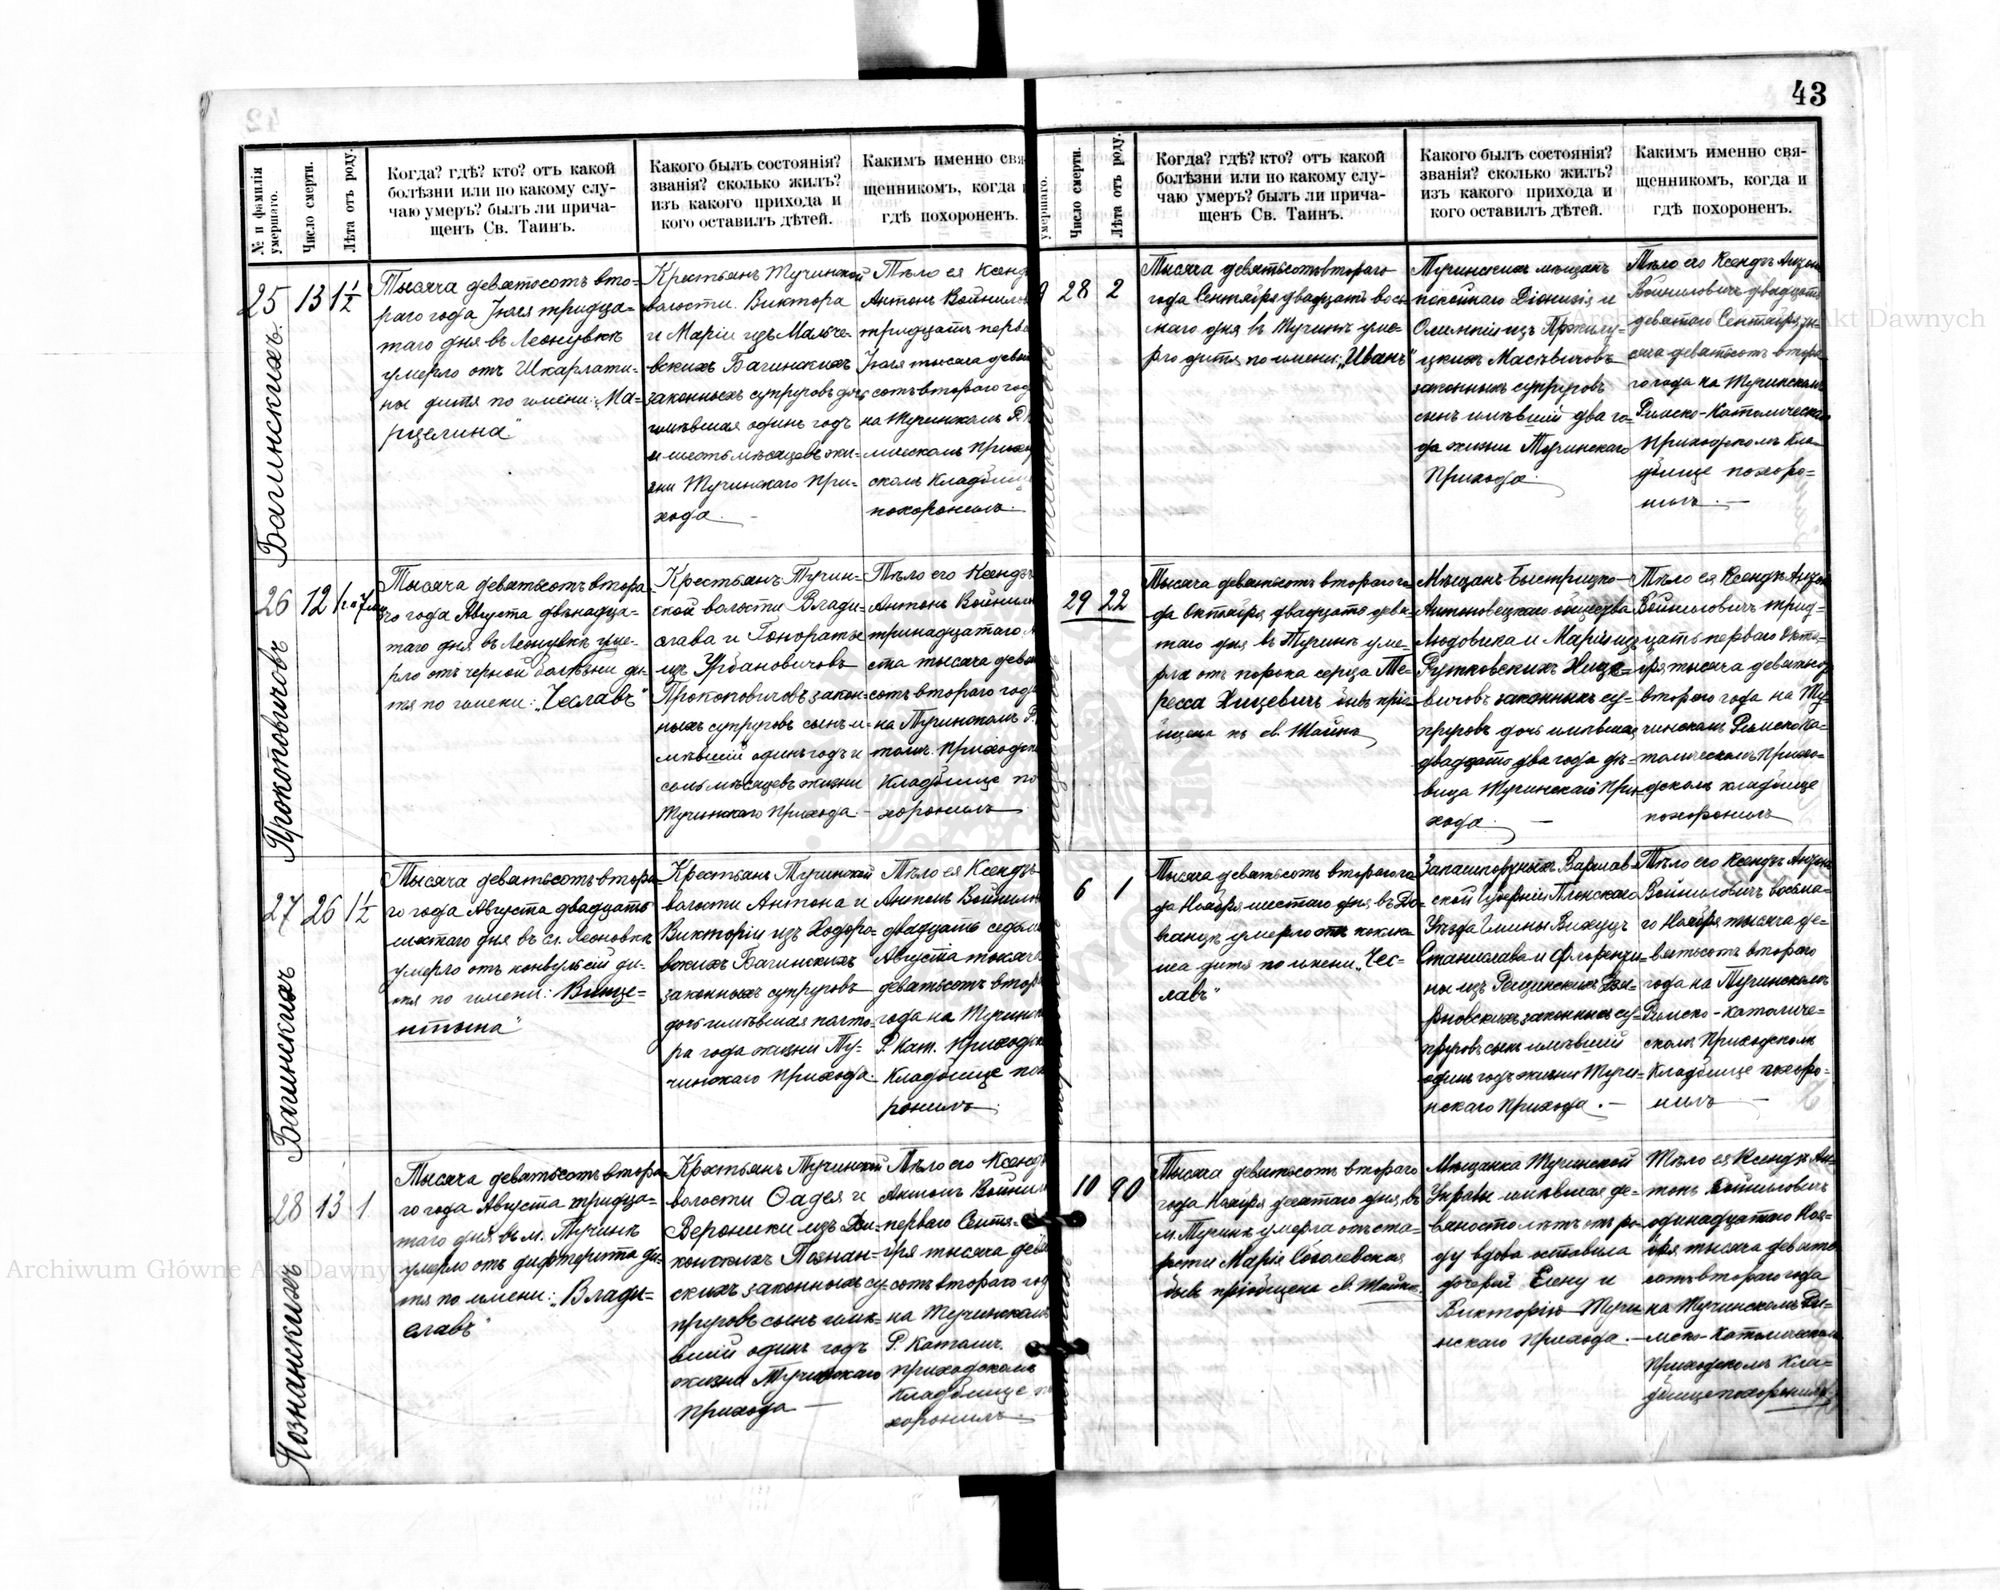 43
№ и фамилія умершаго.
Число смерти.
Лѣта отъ роду.
Когда? гдѣ? кто? отъ какой
болѣзни или по какому слу-
чаю умеръ? былъ ли прича-
щенъ Св. Таинъ.
Какого былъ состоянія?
званія? сколько жилъ?
изъ какого прихода и
кого оставилъ дѣтей.
Каким именно свя-
щенникомъ, когда
гдѣ похороненъ.
25
Багинскихъ.
13
1½
Тысяча девятьсотъ вто-
раго года Іюля тридца-
таго дня въ Леонувкѣ
умерло отъ Шкарлати-
ны дитя по имени: „Ма-
рцелина"
Крестьянъ Тучинской
волости Виктора
и Маріи изъ Мальче-
вскихъ Багинскихъ
законныхъ супруговъ дочь
имѣвшая одинъ годъ
и шесть мѣсяцевъ жи-
зни Тучинскаго При-
хода.
Тѣло ея Ксендз
Антонъ Войнило
тридцать перва
Іюля тысяча девя
сотъ втораго год
на Тучинскомъ Р.
мическомъ Приход
скомъ Кладбищ
похоронилъ.
26
Прокоповичовъ
12
1 го 7 мц
Тысяча девятьсотъ втора-
го года Августа двѣнадца-
таго дня въ Леонувкѣ уме-
рло отъ черной болѣзни ди-
тя по имени: „Чеславъ"
Крестьянъ Тучин-
ской волости Влади-
слава и Гонораты
изъ Урбановичовъ
Прокоповичовъ закон-
ныхъ супруговъ сынъ и-
мѣвшій одинъ годъ и
семь мѣсяцевъ жизни
Тучинскаго Прихода.
Тѣло его Ксендзъ
Антонъ Войнило
тринадцатаго А
ста тысяча девя
сотъ втораго года
на Тучинскомъ Р.
толич. Приходск
Кладбище по
хоронилъ
27
Багинскихъ
26
1½
Тысяча девятьсотъ втора-
го года Августа двадцать
шестаго дня въ с. Леоновкѣ
умерло отъ конвульсій ди-
тя по имени: Винце-
нтына"
Крестьянъ Тучинской
волости Антона и
Викторіи изъ Ходоро-
вскихъ Багинскихъ
законныхъ супруговъ
дочь имѣвшая полто-
ра года жизни Ту-
чинскаго Прихода.
Тѣло ея Ксендзъ
Антонъ Войнило
двадцать седьм
Августа тысяча
девятьсотъ втор
года на Тучинск
Р. Кат. Приходск
Кладбище пох
ронилъ
28
Познанскихъ
13
1
Тысяча девятьсотъ втора-
го года Августа тридца-
таго дня въ м. Тучинѣ
умерло отъ дифтерита ди-
тя по имени: „Влади-
славъ"
Крестьянъ Тучинской
волости Фадея и
Вероники изъ Ди-
конскихъ Познан-
скихъ законныхъ су-
пруговъ сынъ имѣ-
вшій одинъ годъ
жизни Тучинскаго
Прихода
Тѣло его Ксендз
Антонъ Войнил
перваго Сентя-
бря тысяча девя
сотъ втораго год
на Тучинскомъ
Р. Католич.
приходскомъ
Кладбище по
хоронилъ
умершаго.
Число смерти.
Лѣта отъ роду.
Когда? гдѣ? кто? отъ какой
болѣзни или по какому слу-
чаю умеръ? былъ ли прича-
щенъ Св. Таинъ.
Какого былъ состоянія?
званія? сколько жилъ?
изъ какого прихода и
кого оставилъ дѣтей.
Какимъ именно свя-
щенникомъ, когда и
гдѣ похороненъ.
28
2
Тысяча девятьсотъ втораго
года Сентября двадцать вось-
маго дня въ Тучинѣ уме-
рло дитя по имени: „Иванъ"
Тучинскихъ мѣщанъ
покойнаго Діонизія и
Олимпіи изъ
Масѣвичовъ
законныхъ супруговъ
сынъ имѣвшій два го-
да жизни Тучинскаго
Прихода.
Тѣло его Ксендзъ Антонъ
Войниловичъ двадцать
девятаго Сентября ты-
сяча девятьсотъ втора-
го года на Тучинскомъ
Римско-Католическомъ
Приходскомъ Кла-
дбище похоро-
нилъ.
29
22
Тысяча девятьсотъ втораго го-
да Октября двадцать девя-
таго дня въ Тучинѣ уме-
рла отъ порока сердца Те-
ресса Хицевичъ бывъ прі-
общена къ св. Тайнъ
Мѣщанъ Быстрицко-
Антоновецкаго общества
Людовика и Маріи из
Рутковскихъ Хице-
вичовъ законныхъ су-
пруговъ дочь имѣвшая
двадцать два года дѣ-
вица Тучинскаго При-
хода.
Тѣло ея Ксендзъ Антон
Войниловичъ трид-
цать перваго Октя-
бря тысяча девятьсотъ
втораго года на Ту-
чинскомъ Римско Ка-
толическомъ Прихо-
дскомъ кладбище
похоронилъ
6
1
Тысяча девятьсотъ втораго го-
да Ноября шестаго дня, въ
умерло отъ коклю-
ша дитя по имени „Чес-
лавъ"
Варшав-
ской Губерніи Плонскаго
Уѣзда Гмины
Станислава и Флоренти-
ны изъ
законныхъ су-
пруговъ сынъ имѣвшій
одинъ годъ жизни Тучи-
нскаго Прихода.
Тѣло его Ксендзъ Антонъ
Войниловичъ восьма-
го Ноября тысяча де-
вятьсотъ втораго
года на Тучинскомъ
Римско-Католиче-
скомъ Приходскомъ
Кладбище похоро-
нилъ
10
90
Тысяча девятьсотъ втораго
года Ноября десятаго дня, въ
м. Тучинѣ умерла отъ ста-
рости Марія Соболевская
бывъ пріобщена св. Тайнъ.
Мѣщанка Тучинской
Управы имѣвшая де-
вяносто лѣтъ отъ ро-
ду вдова оставила
дочерей Елену и
Викторію Тучи-
нскаго Прихода.
Тѣло ея Ксендзъ Ан-
тонъ Войниловичъ
одинадцатаго Ноя-
бря тысяча девять
сотъ втораго года
на Тучинскомъ Ри-
мско-Католическомъ
Приходскомъ Кла-
дбище похоронилъ
Archiwum Główne Akt Dawnych
Akt Dawnych